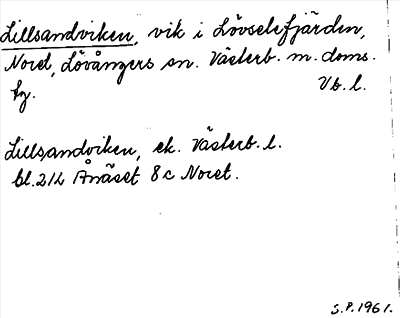 Lillsandviken, vik i Lövselefjärden,
Noret, Lövångers sn. Västerb. m. doms.
fg. Vb. l.
Lillsandviken, ek. Västerb. l.
bl. 212 Ånäset 8c Noret.
S.P. 1961.